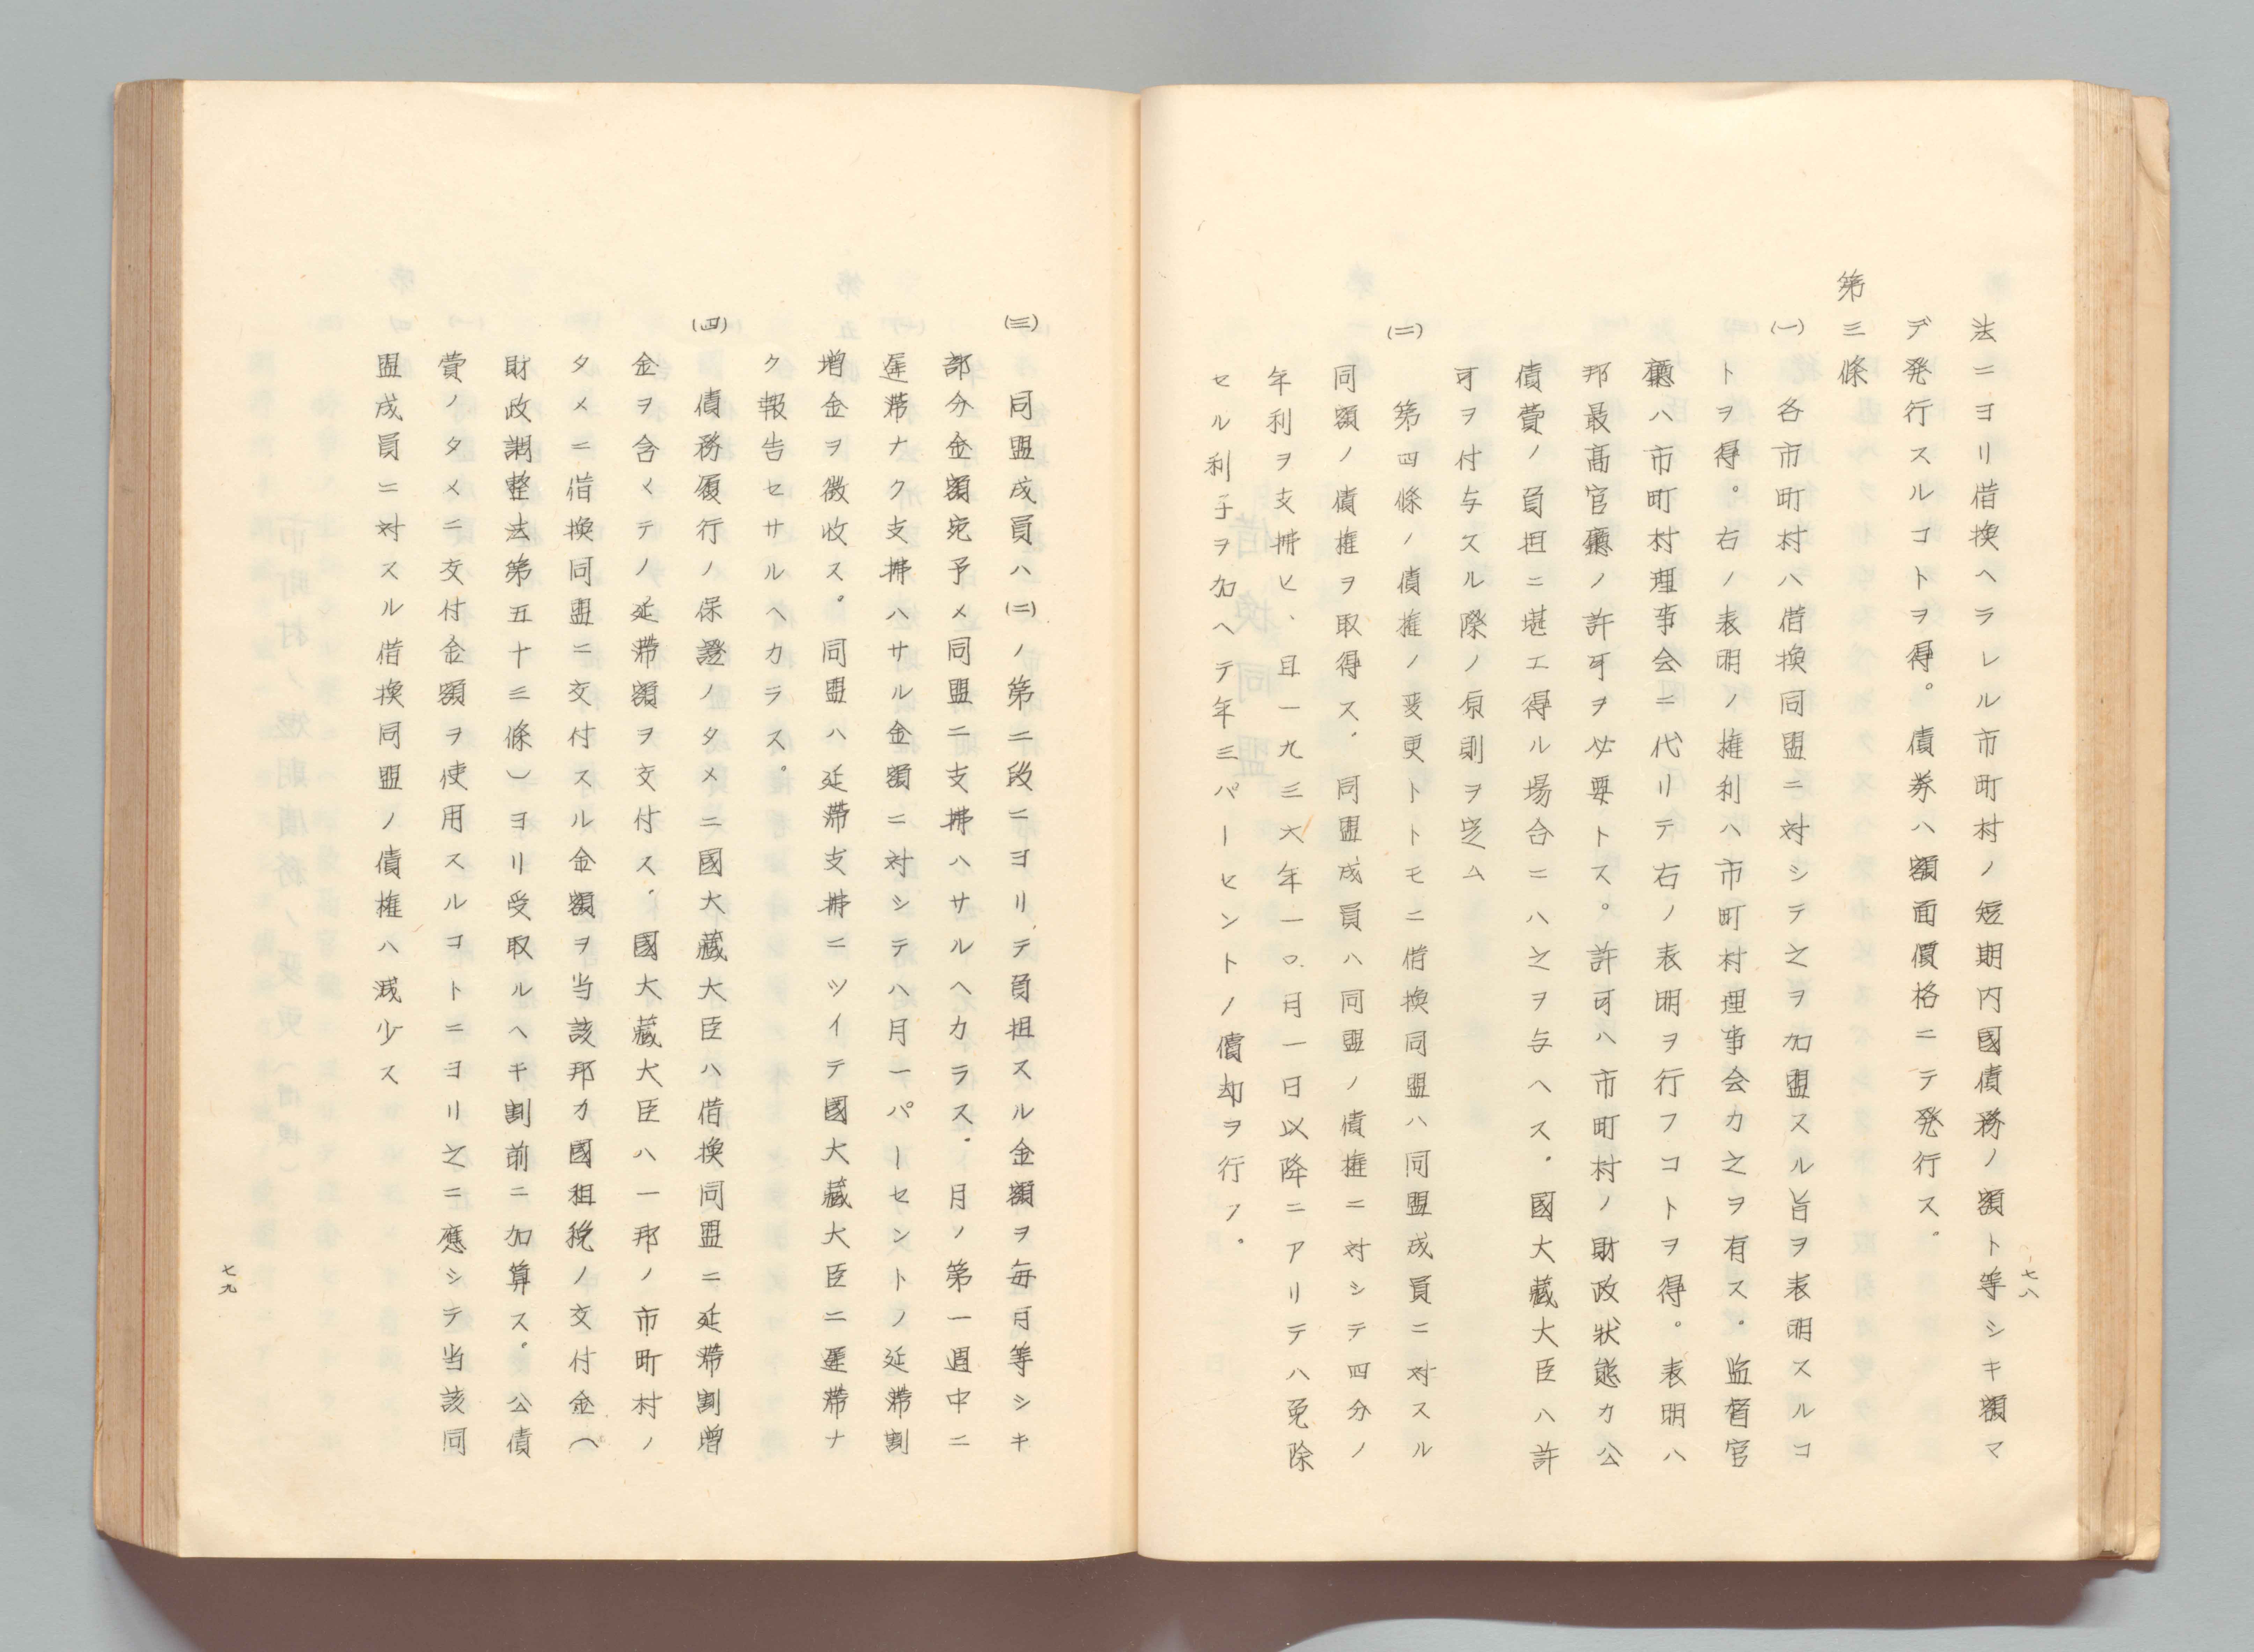 七八
法ニヨリ借換ヘラレル市町村ノ短期内國債務ノ額ト等シキ額マ
デ発行スルコトヲ得。債券ハ額面價格ニテ発行ス。
第三條
(一) 各市町村ハ借換同盟ニ対シテ之ヲ加盟スル旨ヲ表明スルコ
トヲ得。右ノ表明ノ権利ハ市町村理事会カ之ヲ有ス。監督官
廳ハ市町村理事会ニ代リテ右ノ表明ヲ行フコトヲ得。表明ハ
邦最高官廳ノ許可ヲ必要トス。許可ハ市町村ノ財政狀態カ公
債費ノ負担ニ堪エ得ル場合ニハ之ヲ与ヘス。國大藏大臣ハ許
可ヲ付与スル際ノ原則ヲ定ム
(二) 第四條ノ債権ノ変更トトモニ借換同盟ハ同盟成員ニ対スル
同額ノ債権ヲ取得ス。同盟成員ハ同盟ノ債権ニ対シテ四分ノ
年利ヲ支拂ヒ、且一九三六年一〇月一日以降ニアリテハ免除
セル利子ヲ加ヘテ年三パーセントノ償却ヲ行フ。
(三) 同盟成員ハ(二)ノ第二段ニヨリテ負担スル金額ヲ毎月等シキ
部分金額宛予メ同盟ニ支拂ハサルヘカラス。月ノ第一週中ニ
遅滞ナク支拂ハサル金額ニ対シテハ月一パーセントノ延滞割
増金ヲ徴收ス。同盟ハ延滞支拂ニツイテ國大藏大臣ニ遅滞ナ
ク報告セサルヘカラス。
(四) 債務履行ノ保證ノタメニ國大藏大臣ハ借換同盟ニ延滞割増
金ヲ含メテノ延滞額ヲ交付ス。國大藏大臣ハ一邦ノ市町村ノ
タメニ借換同盟ニ交付スル金額ヲ当該邦カ國租税ノ交付金(
財政調整法第五十三條)ヨリ受取ルヘキ割前ニ加算ス。公債
費ノタメニ交付金額ヲ使用スルコトニヨリ之ニ應シテ当該同
盟成員ニ対スル借換同盟ノ債権ハ減少ス
七九